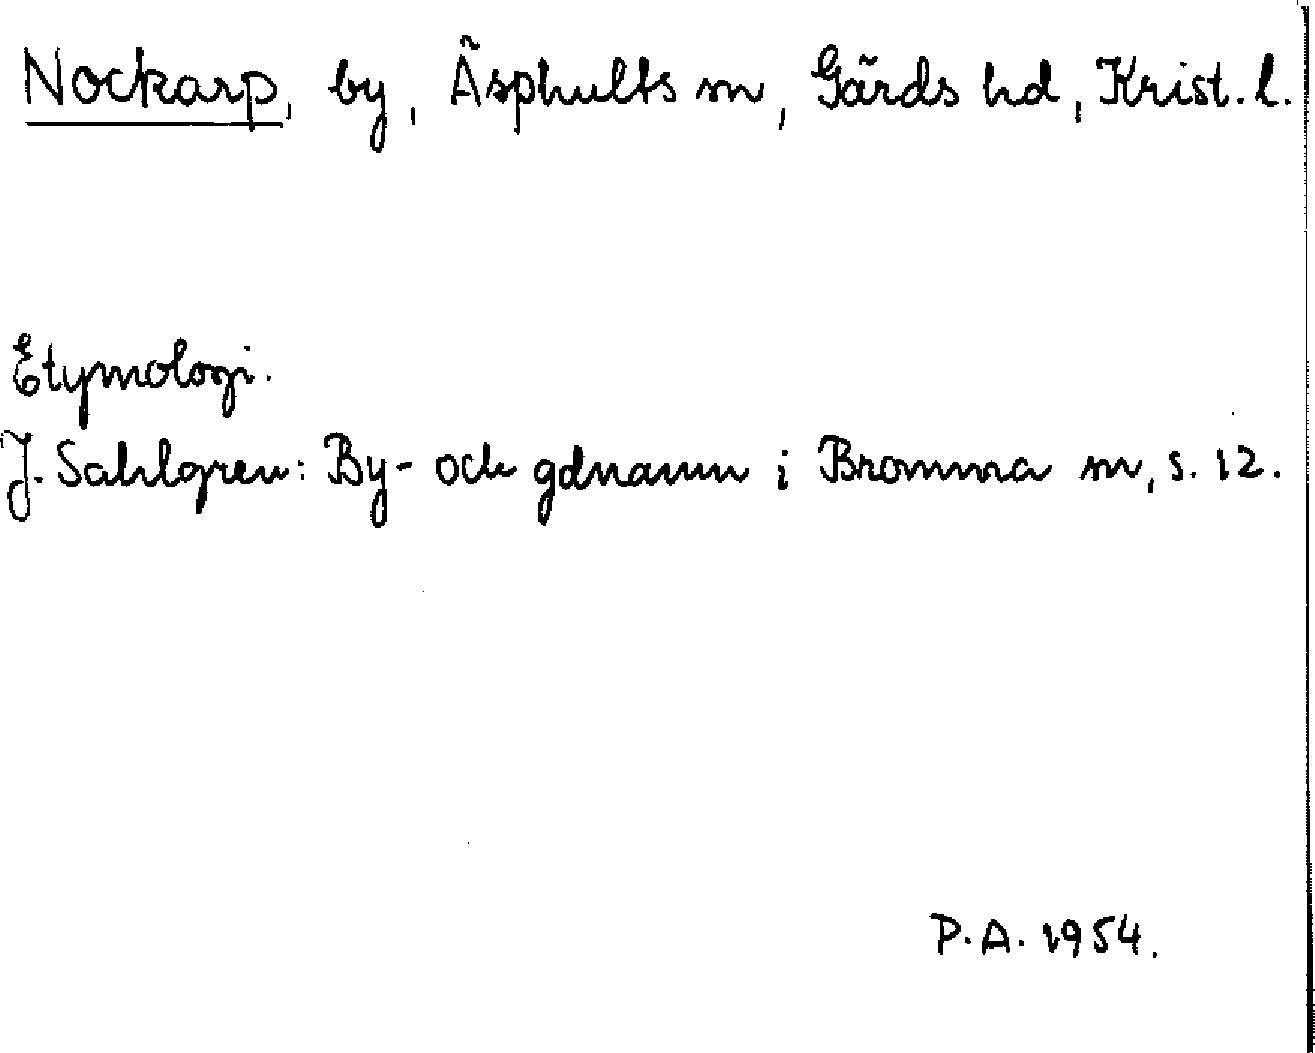 Nockarp, by, Äsphults sn, Gärds hd, Krist. l.
Etymologi.
J. Sahlgren: By- och gdnamn i Bromma sn, s. 12.
P.A. 1954.